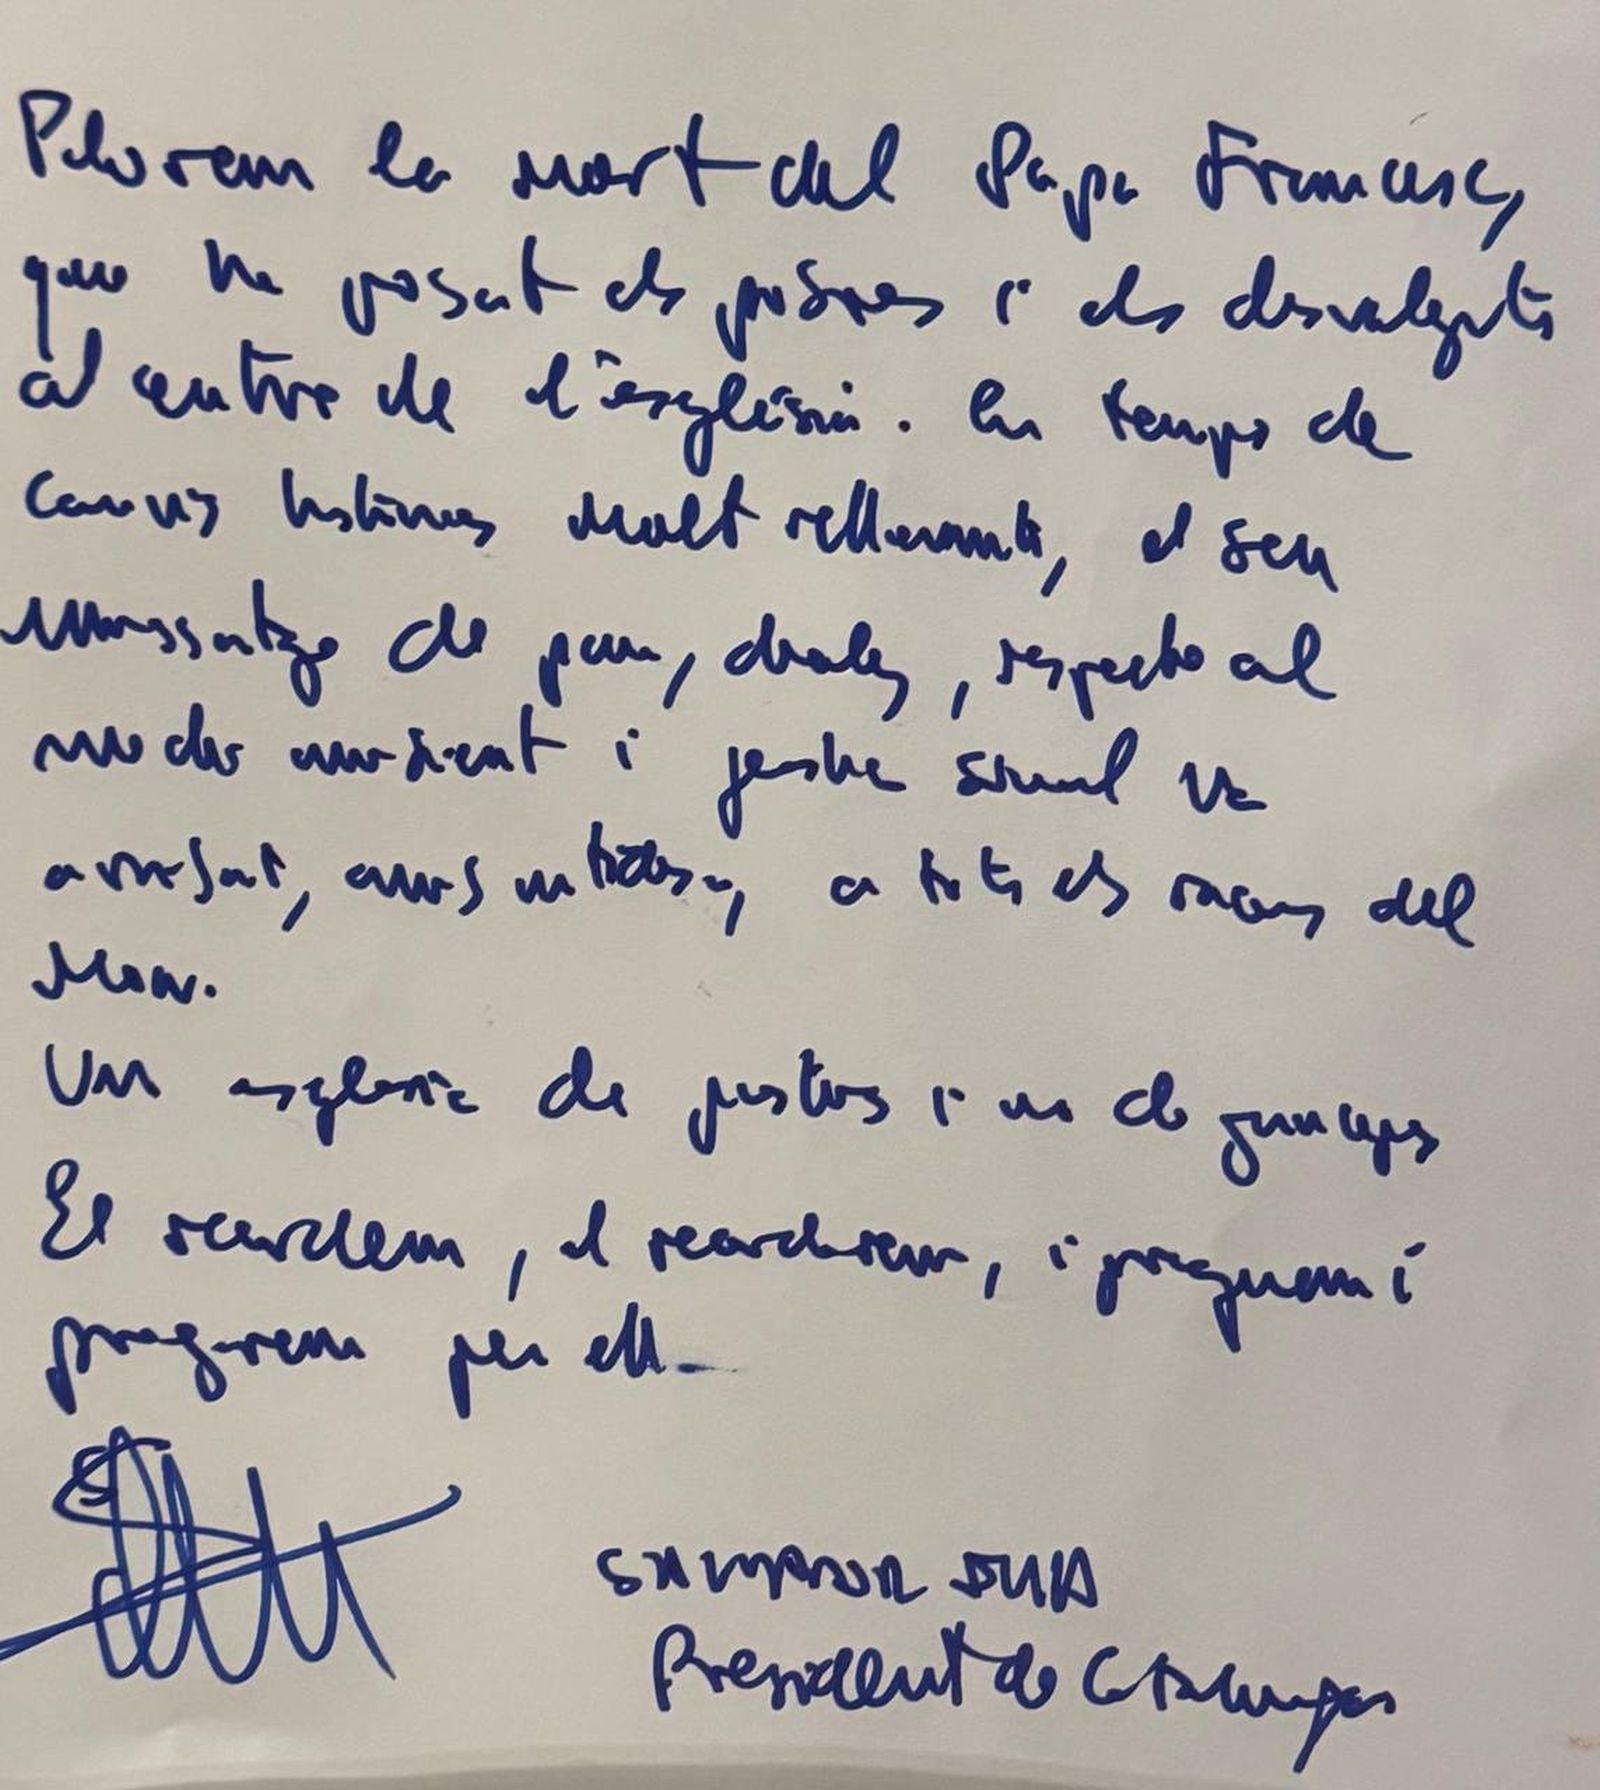 Plorem la mort del Papa Francesc,
que ha posat els pobres i els desvalguts
al centre de l'església. En temps de
canvis històrics molt rellevants, el seu
missatge de pau, diàleg, respecte al
medi ambient i justícia social va
arribar, amb nitidesa, a tots els racons del
Mon.
Una església de justos i no de
El recordem, el recordarem, i preguem i
pregarem per ell.
SALVADOR ILLA
President de Catalunya